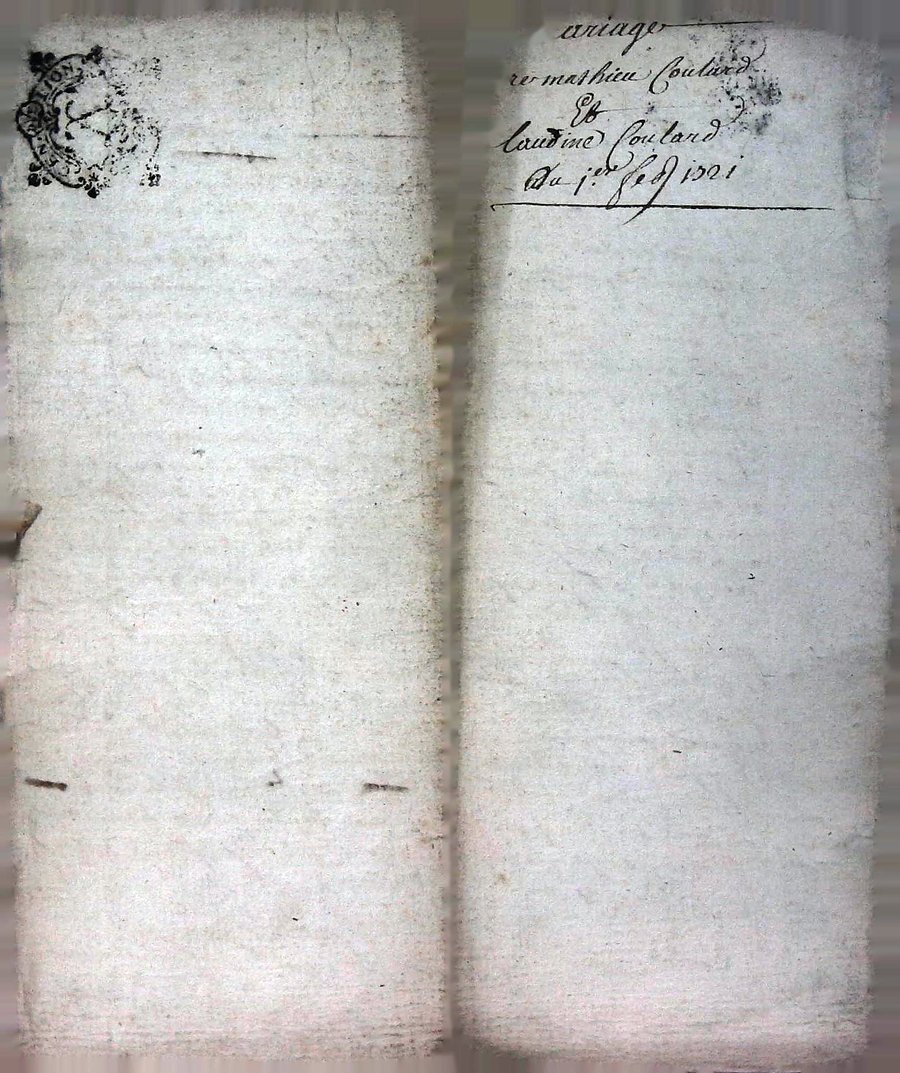 ariage
re mathieu Coulard
Et
laudine Coulard
du 1er feb 1721